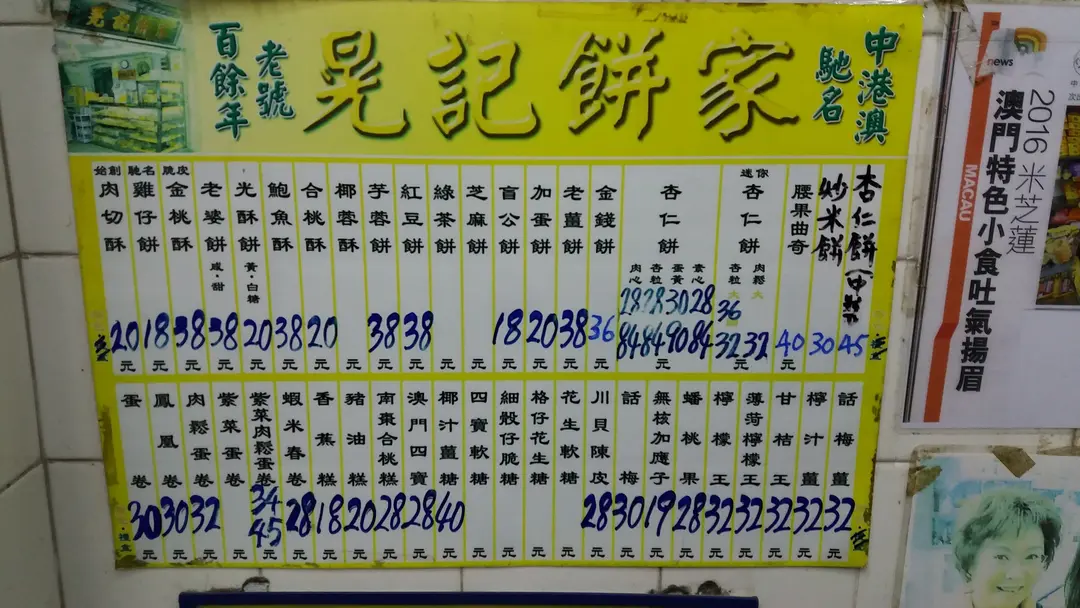 晃記餅家
百餘年
老號
晃記餅家
馳名
中港澳
始創 肉切酥 20 元
馳名 雞仔餅 18 元
脆皮 金桃酥 38 元
老婆餅 咸·甜 38 元
光酥餅 黃·白糖 20 元
鮑魚酥 38 元
合桃酥 20 元
椰蓉酥 元
芋蓉餅 38 元
紅豆餅 38 元
綠茶餅 元
芝麻餅 元
盲公餅 18 元
加蛋餅 20 元
老薑餅 38 元
金錢餅 36 元
杏仁餅
肉心 杏粒 蛋黃 素心
28 28 30 28
84 84 90 84 元
迷你 杏仁餅
杏粒大 肉鬆大
36
32 32 元
腰果曲奇 40 元
炒米餅 30 元
杏仁餅(中裝) 45 元
蛋卷 30 元
禮盒
鳳凰卷 30 元
肉鬆蛋卷 32 元
紫菜蛋卷 元
紫菜肉鬆蛋卷 34 45 元
蝦米春卷 28 元
香蕉糕 18 元
豬油糕 20 元
南棗合桃糕 28 元
澳門四寶 28 元
椰汁薑糖 40 元
四寶軟糖 元
細骰仔脆糖 元
格仔花生糖 元
花生軟糖 元
川貝陳皮 28 元
話梅 30 元
無核加應子 19 元
蟠桃果 28 元
檸檬王 32 元
薄荷檸檬王 32 元
甘桔王 32 元
檸汁薑 32 元
話梅薑 32 元
news
2016 米芝蓮
澳門特色小食吐氣揚眉
MACAU